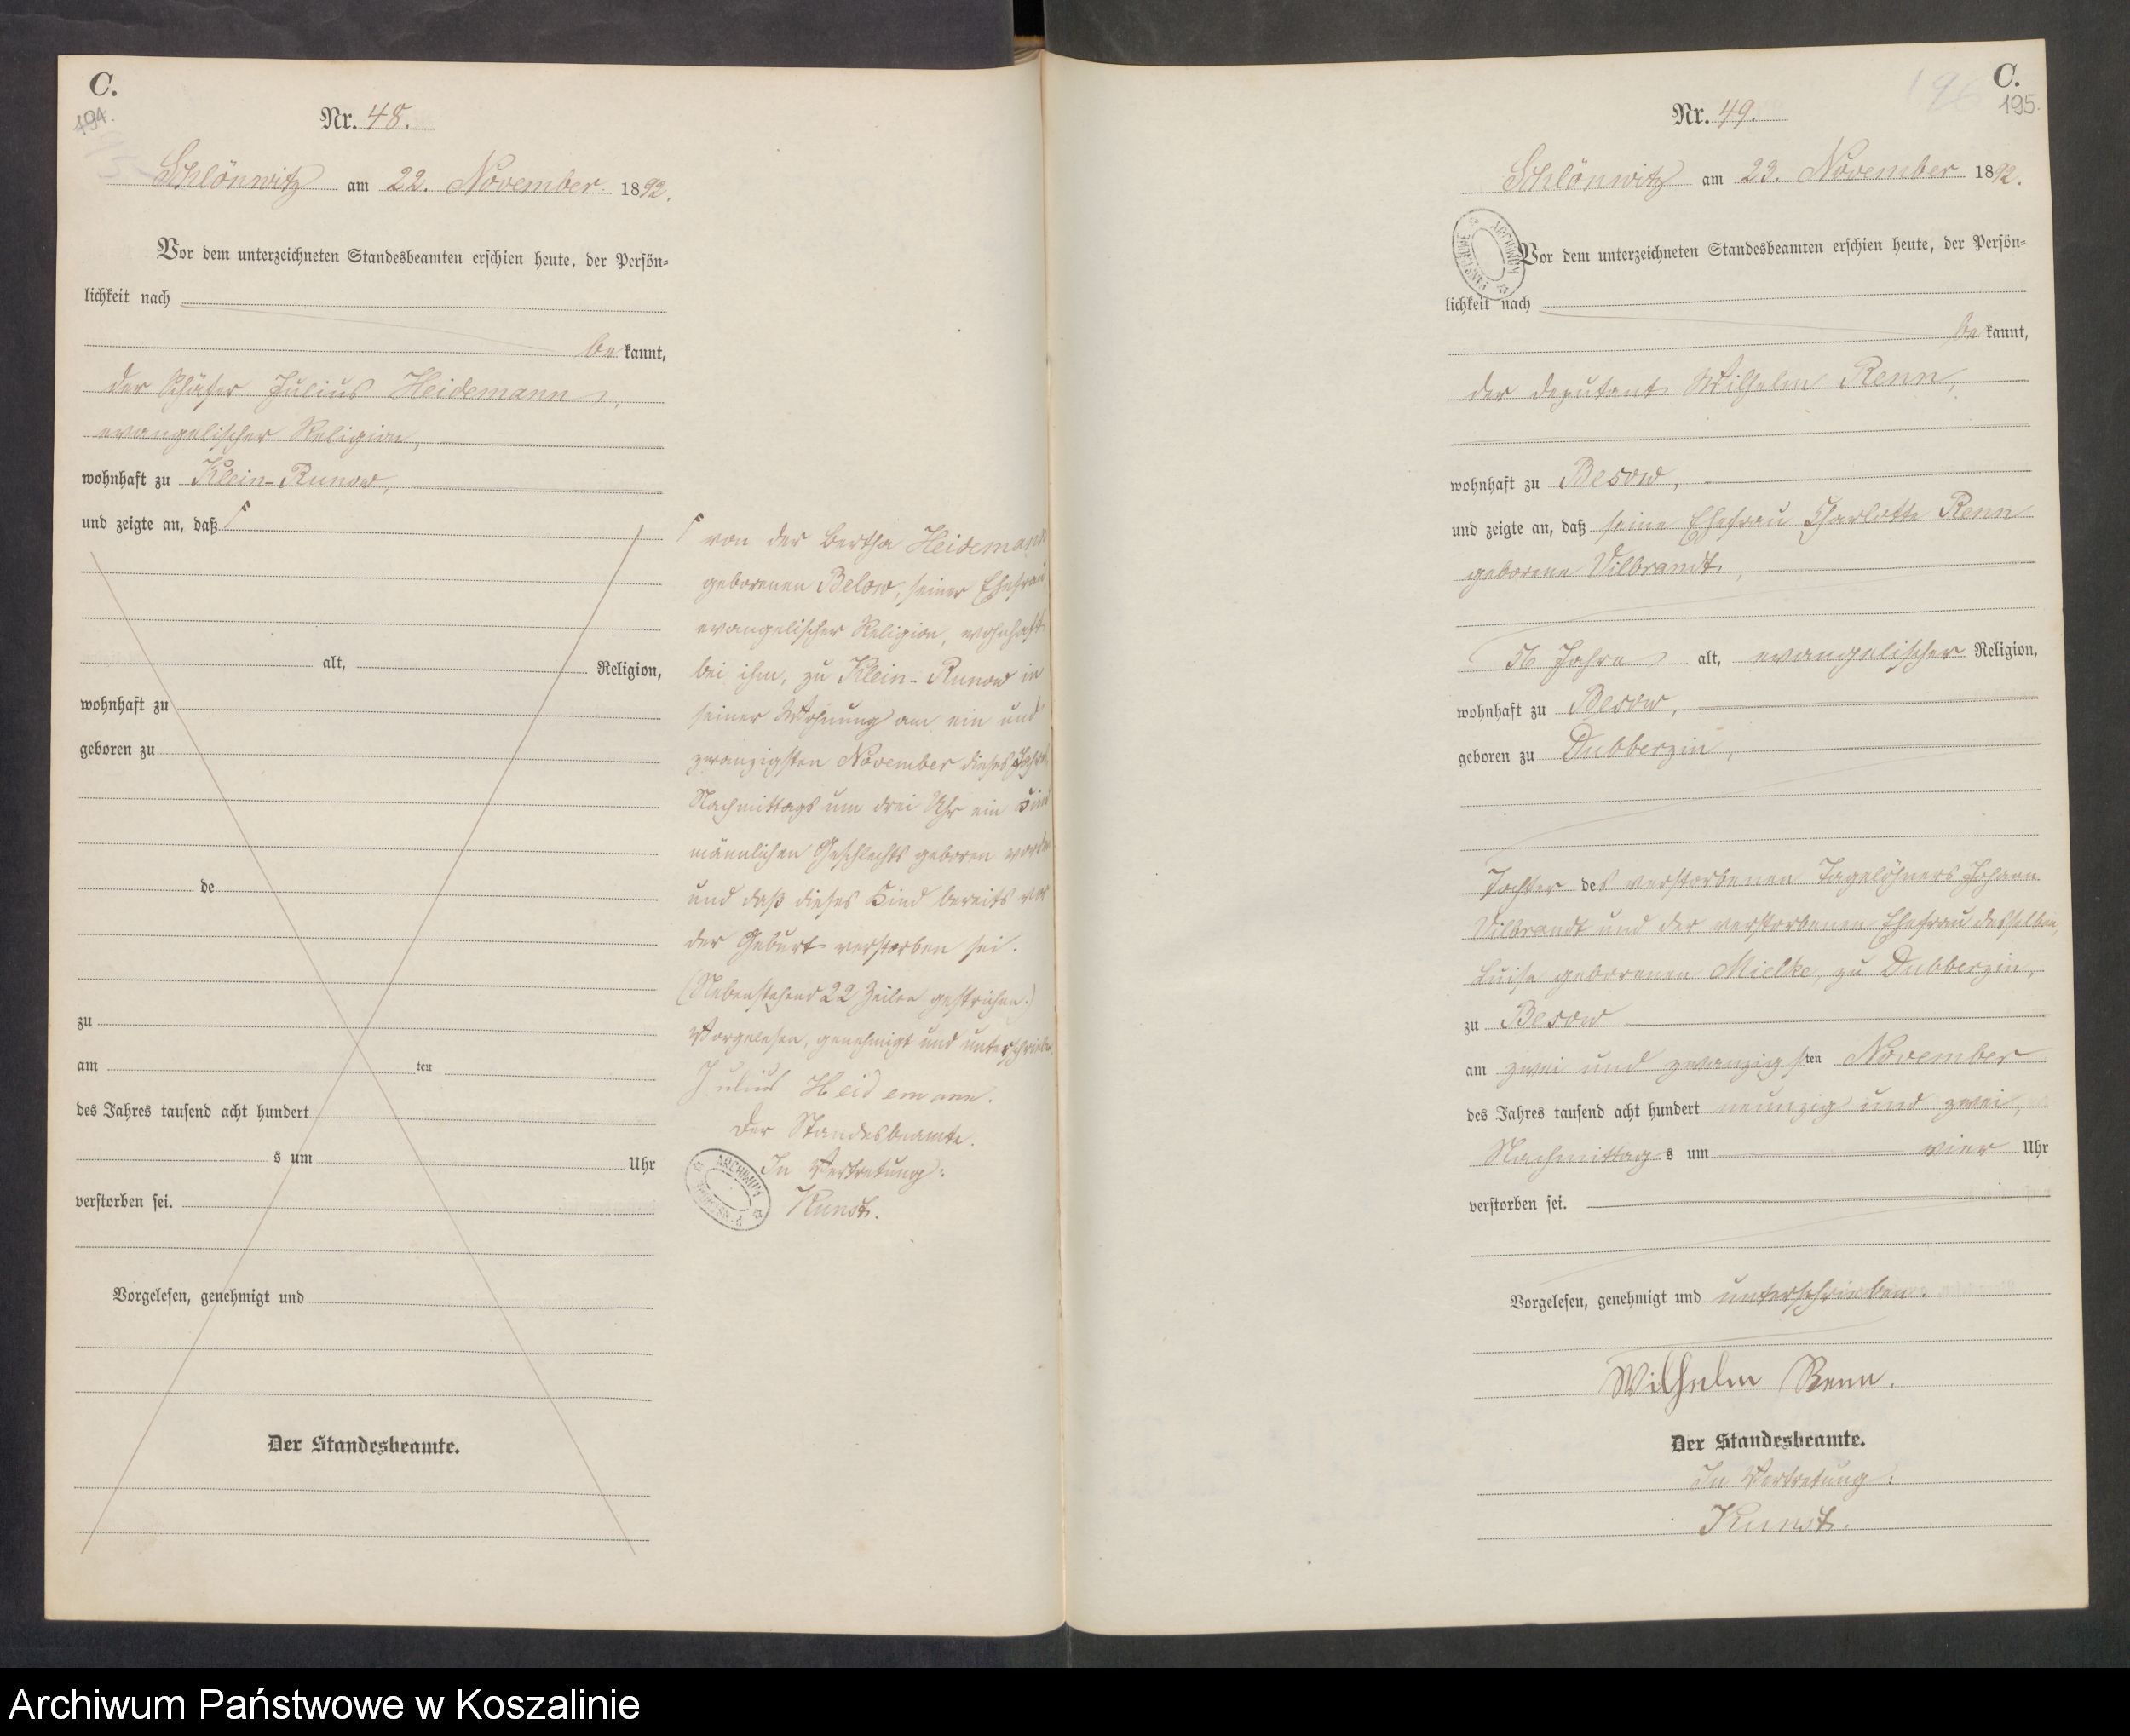 C.
194.
Nr. 48.
Schlönwitz am 22. November 1892.
Vor dem unterzeichneten Standesbeamten erschien heute, der Persön-
lichkeit nach
be kannt,
der Schäfer Julius Heidemann,
evangelischer Religion,
wohnhaft zu Klein-Runow,
und zeigte an, daß
alt, Religion,
wohnhaft zu
geboren zu
de
zu
am ten
des Jahres tausend acht hundert
s um Uhr
verstorben sei.
Vorgelesen, genehmigt und
Der Standesbeamte.
von der Bertha Heidemann
geborenen Below, seiner Ehefrau,
evangelischer Religion, wohnhaft
bei ihm, zu Klein-Runow in
seiner Wohnung am ein und
zwanzigsten November dieses Jahres
Nachmittags um drei Uhr ein Kind
männlichen Geschlechts geboren worden
und daß dieses Kind bereits vor
der Geburt verstorben sei.
(Nebenstehend 22 Zeilen gestrichen.)
Vorgelesen, genehmigt und unterschrieben
Julius Heidemann.
Der Standesbeamte.
In Vertretung:
Kunst.
ARCHIWUM
C.
195.
Nr. 49.
Schlönwitz am 23. November 1892.
ARCHIWUM PAŃSTWOWE
Vor dem unterzeichneten Standesbeamten erschien heute, der Persön-
lichkeit nach
be kannt,
der Deputant Wilhelm Renn,
wohnhaft zu Besow,
und zeigte an, daß seine Ehefrau Charlotte Renn
geborene Vilbrandt,
56 Jahre alt, evangelischer Religion,
wohnhaft zu Besow,
geboren zu Dubberzin,
Tochter des verstorbenen Tagelöhners Johann
Vilbrandt und der verstorbenen Ehefrau desselben,
Luise geborenen Mielke, zu Dubberzin,
zu Besow
am zwei und zwanzigsten November
des Jahres tausend acht hundert neunzig und zwei,
Nachmittags um vier Uhr
verstorben sei.
Vorgelesen, genehmigt und unterschrieben.
Wilhelm Renn.
Der Standesbeamte.
In Vertretung:
Kunst.
Archiwum Państwowe w Koszalinie